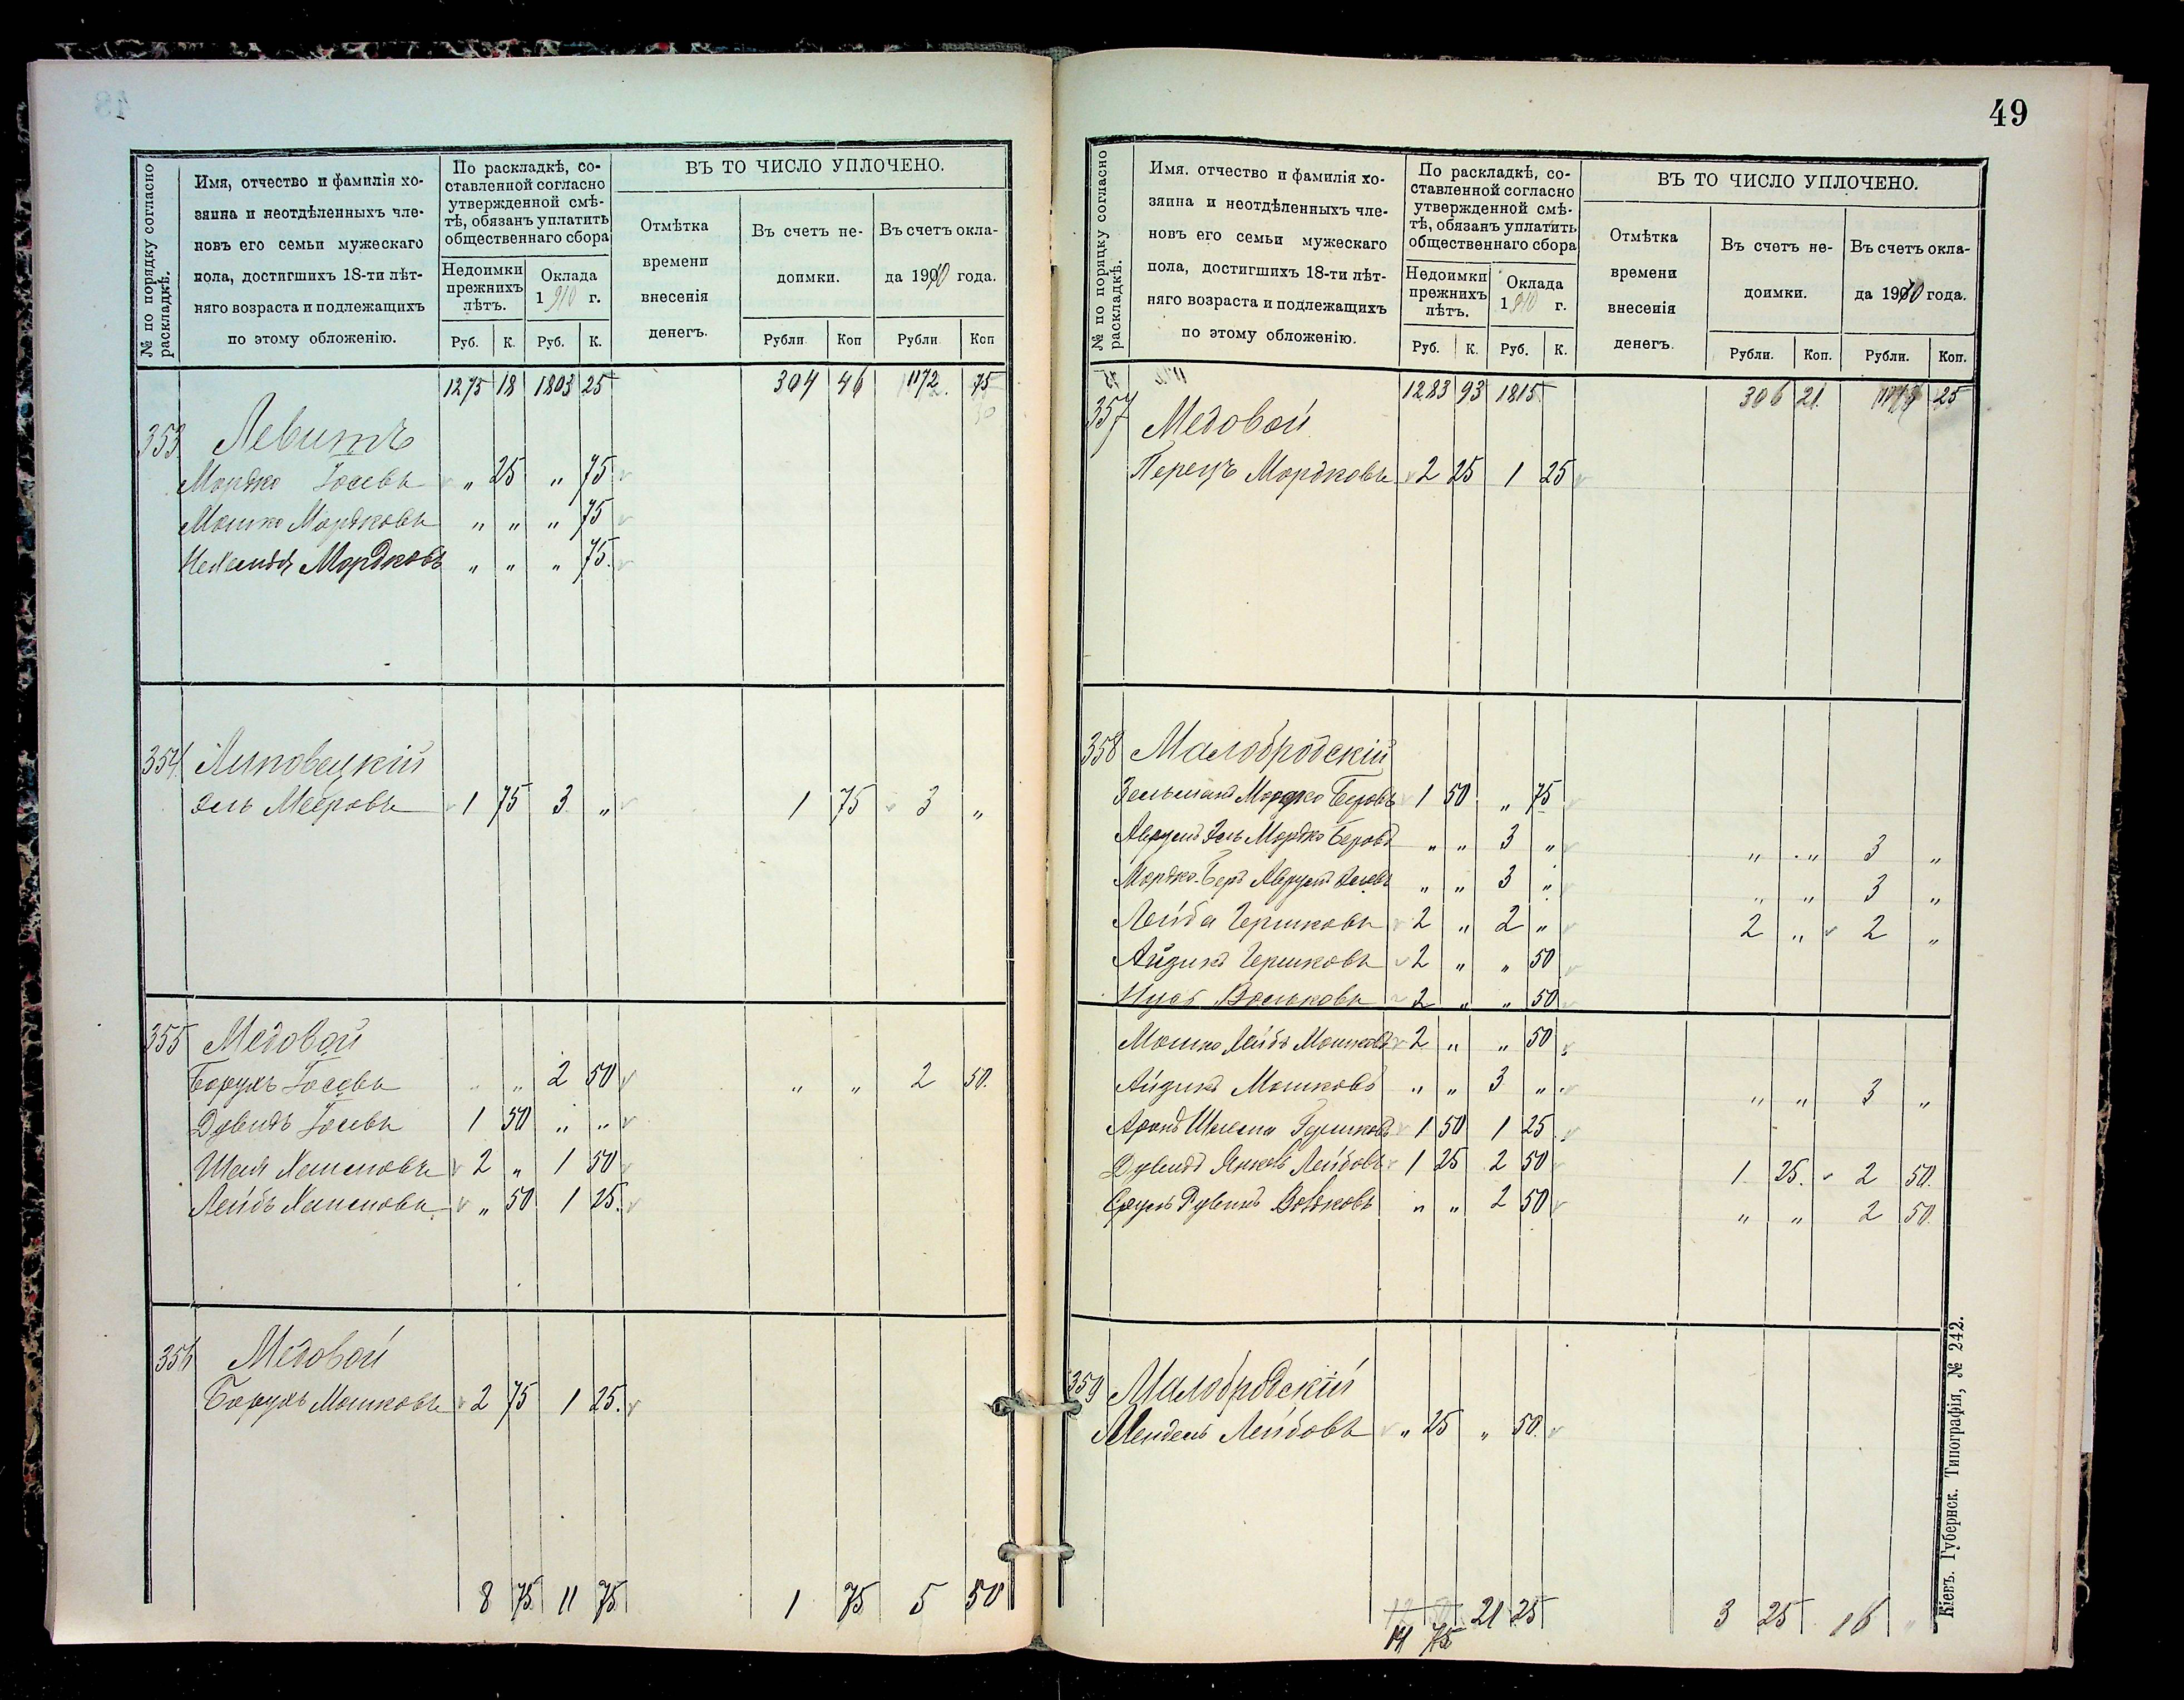 № по порядку согласно раскладкѣ.
Имя, отчество и фамилія хо-
зяина и неотдѣленныхъ чле-
новъ его семьи мужескаго
пола, достигшихъ 18-ти лѣт-
няго возраста и подлежащихъ
по этому обложенію.
По раскладкѣ, со-
ставленной согласно
утвержденной смѣ-
тѣ, обязанъ уплатить
общественнаго сбора
Недоимки прежнихъ лѣтъ.
Оклада 1910 г.
Руб. К. Руб. К.
ВЪ ТО ЧИСЛО УПЛОЧЕНО.
Отмѣтка времени внесенія денегъ.
Въ счетъ не-
доимки.
Въ счетъ окла-
да 1910 года.
Рубли Коп Рубли Коп
1275 18 1803 25 304 46 1172 75
353 Левитъ
Мордко Іосевъ „ 25 „ 75
Мошко Мордковъ „ „ „ 75
Мордковъ „ „ „ 75
354 Липовецкій
Эль Мееровъ 1 75 3 „ 1 75 3 „
355 Медовой
Борухъ Іосевъ „ „ 2 50 „ „ 2 50.
Дувидъ Іосевъ 1 50 „ „
Шая Хаимовъ 2 „ 1 50
Лейбъ Хаимовъ „ 50 1 25.
356 Медовой
Борухъ Мошковъ 2 75 1 25.
8 75 11 75 1 75 5 50
49
№ по порядку согласно раскладкѣ.
Имя. отчество и фамилія хо-
зяина и неотдѣленныхъ чле-
новъ его семьи мужескаго
пола, достигшихъ 18-ти лѣт-
няго возраста и подлежащихъ
по этому обложенію.
По раскладкѣ, со-
ставленной согласно
утвержденной смѣ-
тѣ, обязанъ уплатить
общественнаго сбора
Недоимки прежнихъ лѣтъ.
Оклада 1910 г.
Руб. К. Руб. К.
ВЪ ТО ЧИСЛО УПЛОЧЕНО.
Отмѣтка времени внесенія денегъ.
Въ счетъ не-
доимки.
Въ счетъ окла-
да 1910 года.
Рубли. Коп. Рубли. Коп.
1283 93 1815 306 21 25
357 Медовой
Перецъ Мордковъ 2 25 1 25
358 Малобродскій
Зельманъ Мордко Беровъ 1 50 „ 75
Аврумъ Эль Мордко Беровъ „ „ 3 „ „ „ 3 „
Мордко-Беръ Аврумъ Элевъ „ „ 3 „ „ „ 3 „
Лейба Гершковъ 2 „ 2 „ 2 „ 2 „
Айзикъ Гершковъ 2 „ „ 50
Волковъ 2 „ „ 50
Мошко Лейбъ Мошковъ 2 „ „ 50
Айзикъ Мошковъ „ „ 3 „ „ „ 3 „
Аронъ Шлема Гершковъ 1 50 1 25
Дувидъ Янкель Лейбовъ 1 25 2 50 1 25. 2 50.
Сруль Рувинъ Волковъ „ „ 2 50 „ „ 2 50.
359 Малобродскій
Мендель Лейбовъ „ 25 „ 50.
21 25 3 25 16 „
14 75
Кіевъ. Губернск. Типографія, № 242.